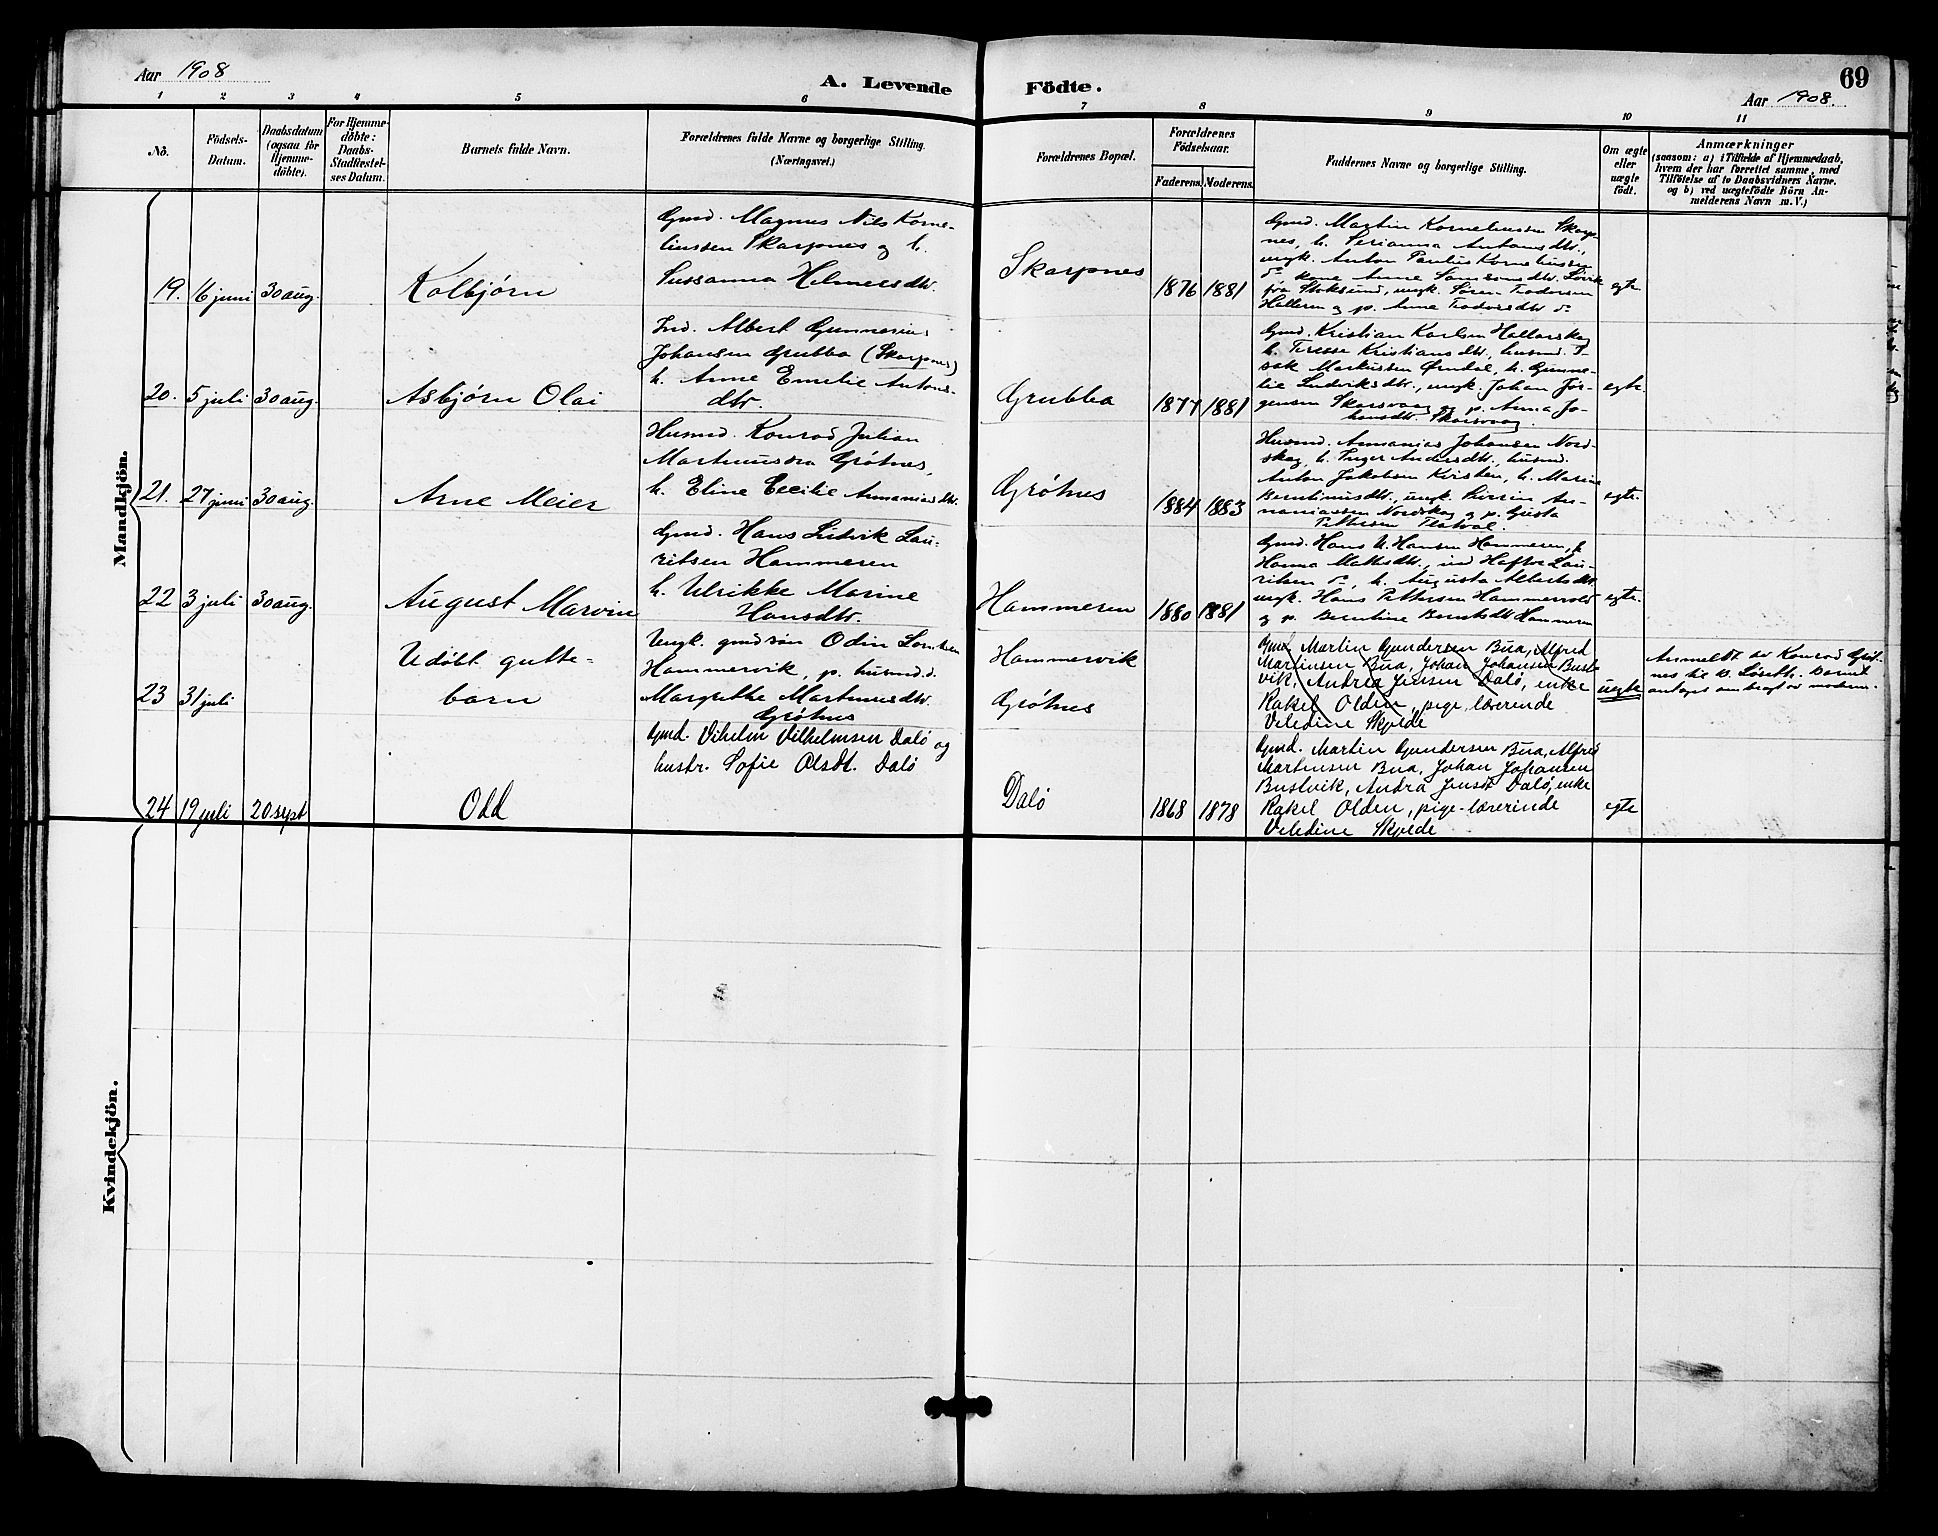 Aar 1908
A. Levende Födte.
Aar 1908.
69
1 2 3 4 5 6 7 8 9 10 11
No.
Födsels-
Datum.
Daabsdatum
(ogsaa for
Hjemme-
døbte).
For Hjemme-
døbte:
Daabs-
Stadfæstel-
ses Datum.
Barnets fulde Navn.
Forældrenes fulde Navne og borgerlige Stilling.
(Næringsvei.)
Forældrenes Bopæl.
Forældrenes
Födselsaar.
Faderens. Moderens.
Faddernes Navne og borgerlige Stilling.
Om ægte
eller
uægte
födt.
Anmærkninger
(saasom: a) i Tilfælde af Hjemmedaab,
hvem der har forrettet samme, med
Tilföielse af to Daabsvidners Navne,
og b) ved uægtefödte Börn An-
melderens Navn m. V.)
Mandkjön.
19. 16 juni 30 aug.
Kolbjørn
Gmd. Magnus Nils Korne-
liussen Skarpnes og h.
Sussanna Helmersdtr.
Skarpnes
1876 1881
Gmd. Martin Korneliussen Skarp-
nes, h. Serianna Antonsdtr.
ungk. Anton Paulus Korneliussen
kone Anne
fra Stoksund, ungk. Søren Teodorsen
Helleren og p. Anne Teodorsdtr
egte
20. 5 juli 30 aug.
Asbjørn Olai
Ind. Albert Gunnerius
Johansen Grubba (Skarpnes)
h. Anne Emelie Antons-
dtr.
Grubba
1877 1881
Gmd. Kristian Karlsen Hallarskag
h. Teresse Kristiansdtr, husmd.
Markussen h. Gunne-
lie Ludviksdtr., ungk. Johan Jør-
gensen Skarsvaag og p. Anna Jo-
hansdtr. Skarsvaag.
egte.
21. 27 juni 30 aug.
Arne Meier
Husmd. Konrad Julian
Martinussen Grøtnes,
h. Eline Cecilie Annaniasdtr.
Grøtnes
1884 1883
Husmd. Annanias Johansen Nord-
skag, h. Inger Andersdtr, husmd.
Anton Jakobsen Kirsten, h. Marie
Berntinusdtr., ungk. An-
naniassen Nordskag og p. Gusta
Pettersen Flatval.
egte.
22 3 juli 30 aug.
August Marvin
Gmd. Hans Ludvik Lau-
ritsen Hammeren
h. Ulrikke Marine
Hansdtr.
Hammeren
1880 1881
Gmd. Hans U. Hansen Hammeren, h
Hanna Mathisdtr., ind Hafton Lau-
ritsen h. Augusta Albertsdtr
ungk. Hans Pettersen Hammervold
og p. Berntine Berntsdtr Hammeren
egte.
23 31 juli
Udøbt gutte-
barn
Ungk. gmdsøn Odin Lornten
Hammervik, p. husmd.d.
Margrethe Martinusdtr.
Grøtnes
Hammervik
Grøtnes
Gmd. Martin Gundersen Bua, Alfred
Martinsen Bua, Johan Johansen Bust-
vik, Andrea Jensen Dalø, enke
Rakel Olden, pige, lærerinde
Veledine Skjelde
uegte
Anmeldt av Konrad Grøt-
nes til B. Løseth. Barnet
antages ombragt av moderen.
24 19 juli 20 sept
Odd
Gmd. Vihelm Vilhelmsen Dalø og
hustr. Sofie Olsdt. Dalø
Dalø
1868 1878
Gmd. Martin Gundersen Bua, Alfred
Martinsen Bua, Johan Johansen
Bustvik, Andra Jensen Dalø, enke
Rakel Olden, pige-lærerinde
Veledine Skjelde
egte
Kvindekjön.